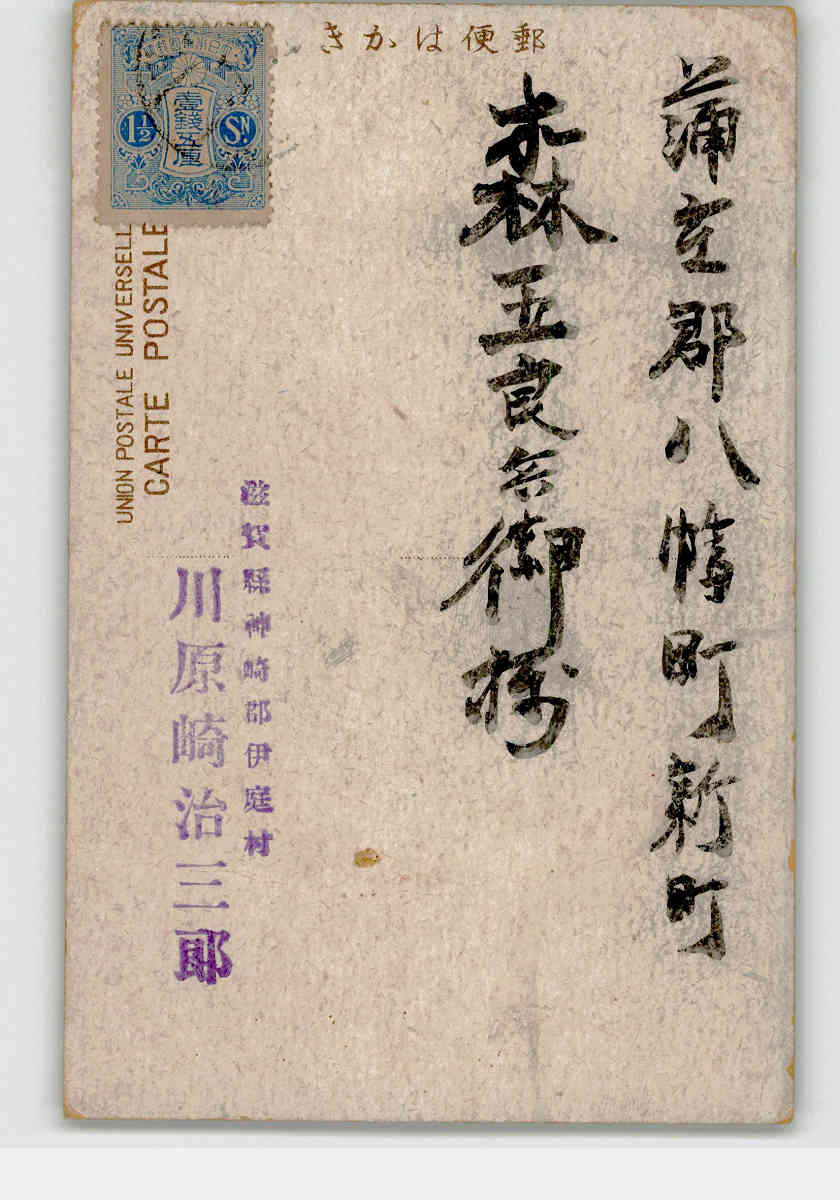 郵便はかき
蒲生郡八幡町新町
森五良兵衛様
滋賀縣神崎郡伊庭村
川原崎治三郎
UNION POSTALE UNIVERSELLE
CARTE POSTALE
壹錢五厘
1½ Sn.